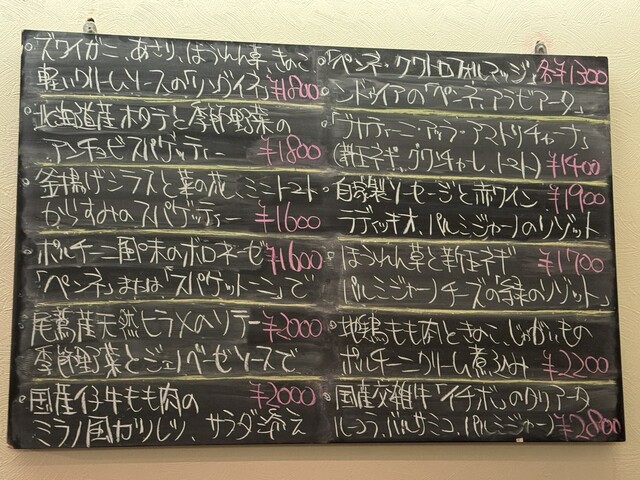 ズワイガニ、あさり、ほうれん草、きのこ
軽いクリームソースの「リングイネ」¥1800
北海道産ホタテと季節野菜の
アンチョビスパゲッティー ¥1800
釜揚げシラスと菜の花、ミニトマト
からすみのスパゲッティー ¥1600
ポルチーニ風味のボロネーゼ ¥1600
「ペンネ」または「スパゲットーニ」で
尾鷲産天然ヒラメのソテー ¥2000
季節野菜とジェノベーゼソースで
国産仔牛もも肉の ¥2000
ミラノ風カツレツ、サラダ添え
「ペンネ・クワトロフォルマッジョ」各¥1300
ンドゥイアの「ペンネ、アラビアータ」
「ブカティーニ・アッラ・アマトリチャーナ」
(新玉ネギ、グワンチャーレ、トマト) ¥1400
自家製ソーセージと赤ワイン ¥1900
ラディッキオ、パルミジャーノのリゾット
ほうれん草と新玉ネギ ¥1700
パルミジャーノチーズの「緑のリゾット」
地鶏もも肉ときのこ、じゃがいもの
ポルチーニクリーム煮込み ¥2200
国産交雑牛「イチボ」のタリアータ
ルーコラ、バルサミコ、パルミジャーノ ¥2800